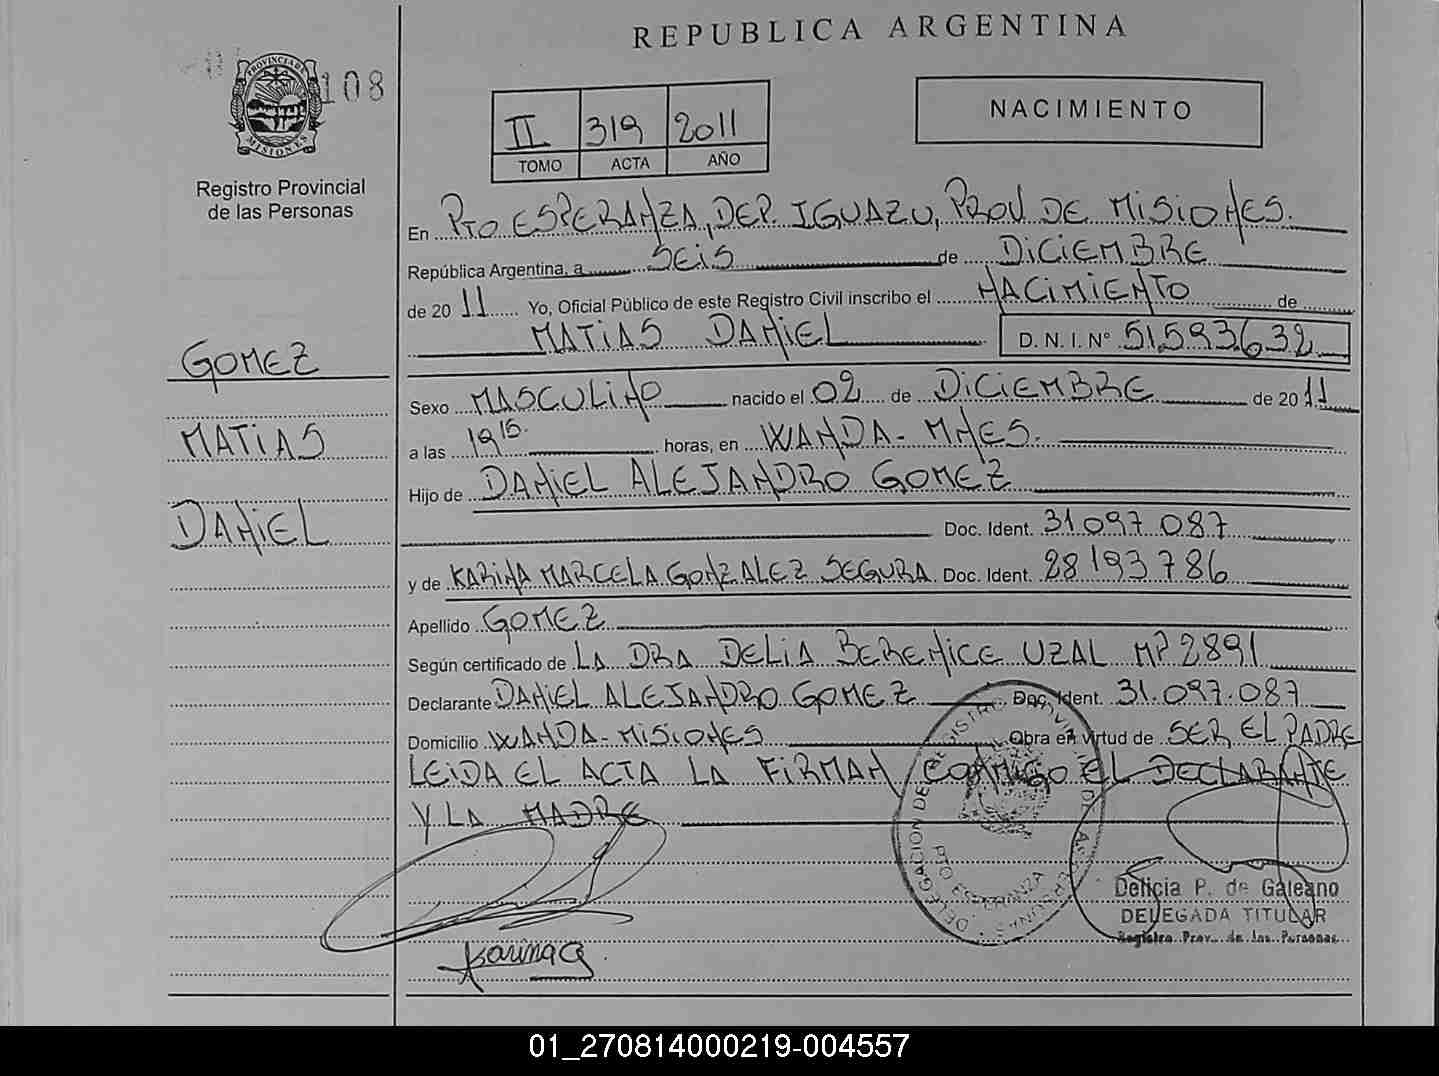 REPUBLICA ARGENTINA
PROVINCIA DE
MISIONES
108
Registro Provincial
de las Personas
II 319 2011
TOMO ACTA AÑO
NACIMIENTO
En PTO ESPERANZA, DEP. IGUAZU, PROV. DE MISIONES.
República Argentina, a SEIS de DICIEMBRE
de 2011 Yo, Oficial Público de este Registro Civil inscribo el NACIMIENTO de
MATIAS DANIEL D. N. I. Nº 51.593.632
GOMEZ
MATIAS
DANIEL
Sexo MASCULINO nacido el 02 de DICIEMBRE de 2011
a las 19 15. horas, en WANDA- MNES.
Hijo de DANIEL ALEJANDRO GOMEZ
Doc. Ident. 31.097.087
y de KARINA MARCELA GONZALEZ SEGURA Doc. Ident. 28 193 786
Apellido GOMEZ
Según certificado de LA DRA DELIA BERENICE UZAL MP 2891
Declarante DANIEL ALEJANDRO GOMEZ Doc. Ident. 31.097.087
Domicilio WANDA- MISIONES Obra en virtud de SER EL PADRE
LEIDA EL ACTA LA FIRMAN CONMIGO EL DECLARANTE
Y LA MADRE
DELEGACION DEL REGISTRO PROVINCIAL DE LAS PERSONAS
PTO ESPERANZA
Delicia P. de Galeano
DELEGADA TITULAR
Registro Prov. de las Personas
Karina G.
01_270814000219-004557